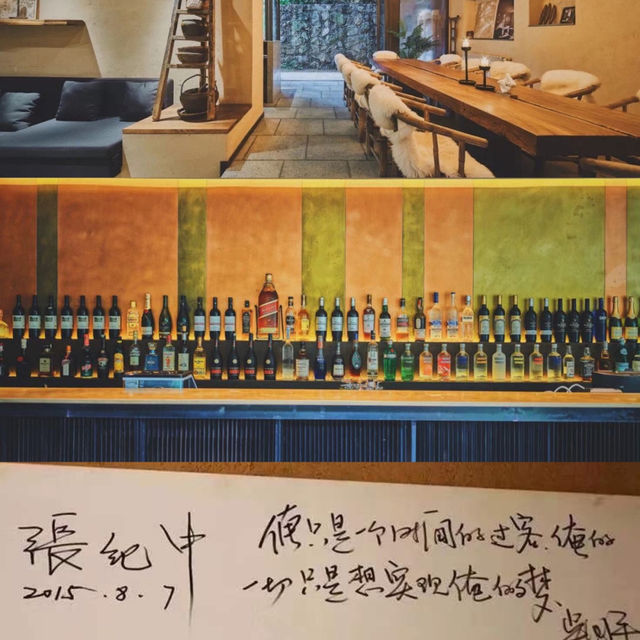 張纪中
2015.8.7
俺只是一个时间的过客.俺的
一切只是想实现俺的梦